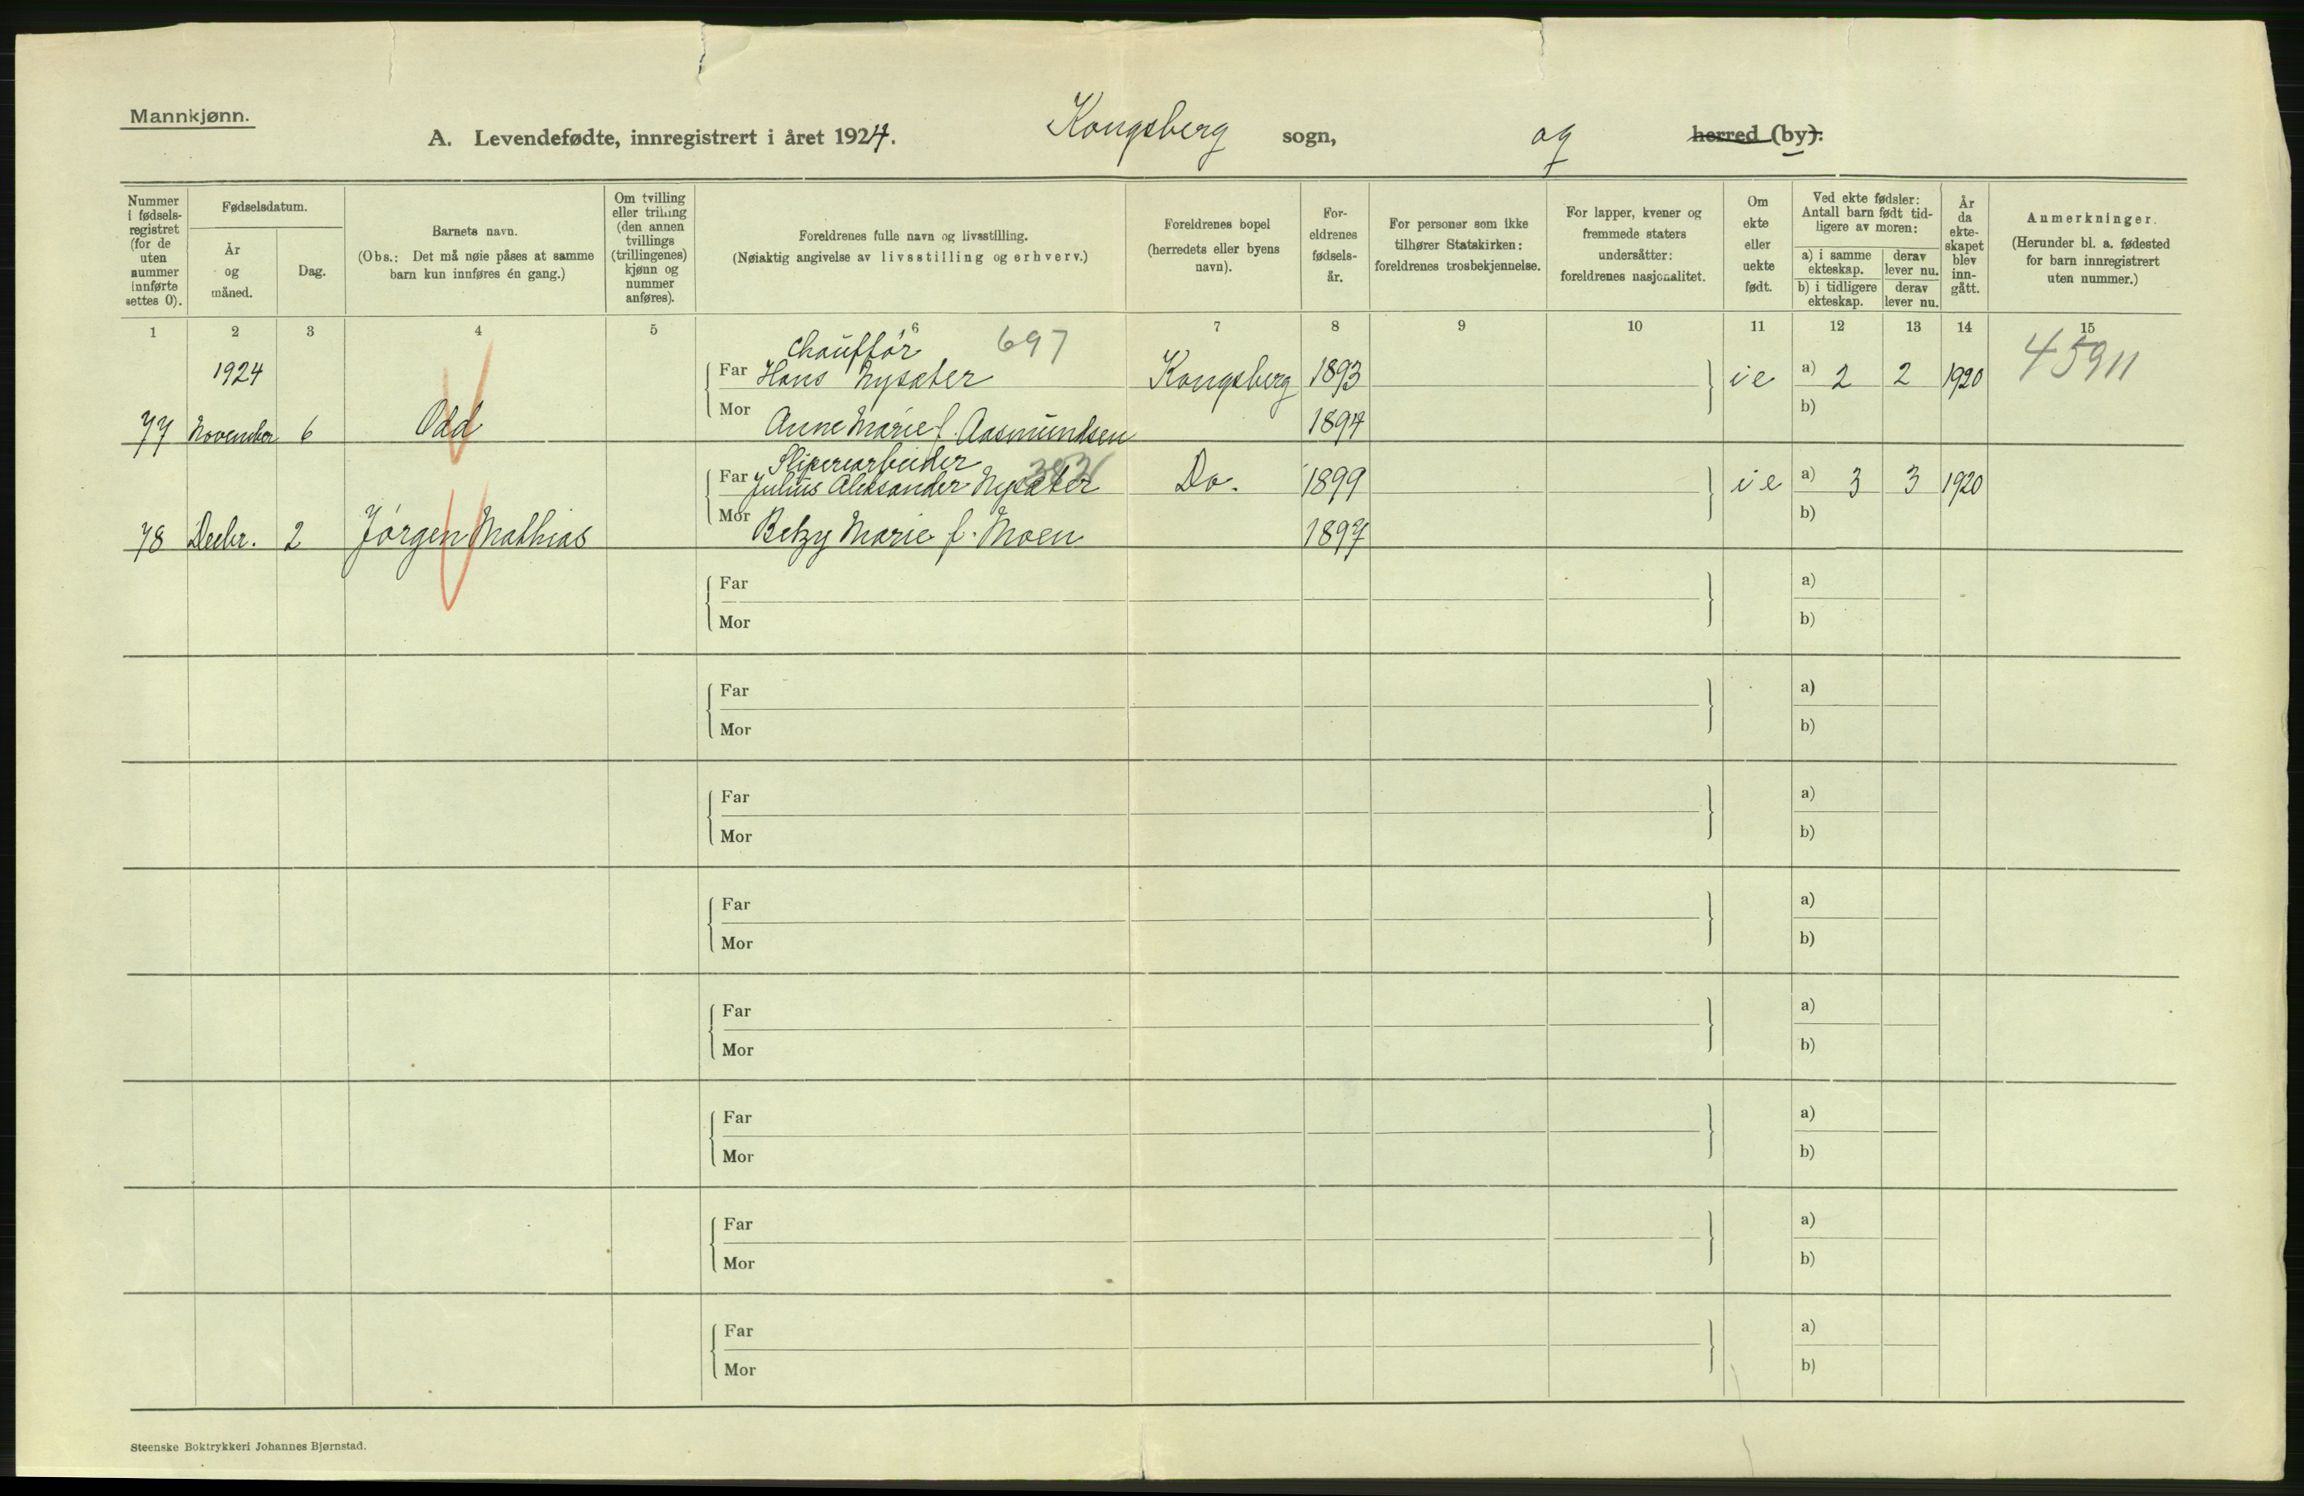 Mannkjønn.
A. Levendefødte, innregistrert i året 1924. Kongsberg sogn, og herred (by):
Nummer i fødsels- registret (for de uten nummer innførte settes 0).
Fødselsdatum.
År og måned.
Dag.
Barnets navn.
(Obs.: Det må nøie påses at samme barn kun innføres én gang.)
Om tvilling eller trilling (den annen tvillings (trillingenes) kjønn og nummer anføres).
Foreldrenes fulle navn og livsstilling.
(Nøiaktig angivelse av livsstilling og erhverv.)
Foreldrenes bopel (herredets eller byens navn).
For- eldrenes fødsels- år.
For personer som ikke tilhører Statskirken: foreldrenes trosbekjennelse.
For lapper, kvener og fremmede staters undersåtter: foreldrenes nasjonalitet.
Om ekte eller uekte født.
Ved ekte fødsler: Antall barn født tid- ligere av moren:
a) i samme ekteskap.
derav lever nu.
b) i tidligere ekteskap.
derav lever nu.
År da ekte- skapet blev inn- gått.
Anmerkninger.
(Herunder bl. a. fødested for barn innregistrert uten nummer.)
1 2 3 4 5 6 7 8 9 10 11 12 13 14 15
chauffør 697
1924 Far Hans Nysæter Kongsberg 1893 i e a) 2 2 1920 45911
77 November 6 Odd Mor Anne Marie f. Aasmundsen 1894 b)
Sliperiarbeider
Far Julius Aleksander Nysæter Do. 1899 i e a) 3 3 1920
78 Decbr. 2 Jørgen Mathias Mor Betzy Marie f. Moen 1897 b)
Far a)
Mor b)
Far a)
Mor b)
Far a)
Mor b)
Far a)
Mor b)
Far a)
Mor b)
Far a)
Mor b)
Far a)
Mor b)
Far a)
Mor b)
Steenske Boktrykkeri Johannes Bjørnstad.